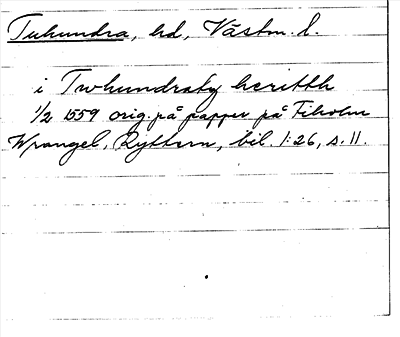 Tuhundra, hd, Västm. l.
i Twhundraty heritth
1/2 1559 orig. på papper på Tiholm
Wrangel, Ryttern, bil. 1:26, s. 11.